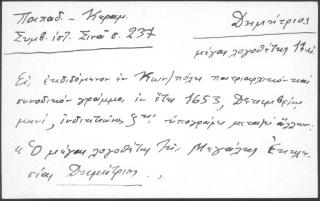 Παπαδ. - Κεραμ.
Συμβ. ἱστ. Σινᾶ σ. 237
Δημήτριος
μέγας λογοθέτης 17 αἰ
Εἰς ἐκδιδόμενον ἐν Κων/πόλει πατριαρχικὸν καὶ
συνοδικὸν γράμμα, ἐν ἔτει 1653, Δεκεμβρίῳ
μηνὶ, ἰνδικτιῶνος ζῃς ὑπογράφει μεταξὺ ἄλλων:
« Ὁ μέγας λογοθέτης τῆς Μεγάλης Ἐκκλη-
σίας Δημήτριος »